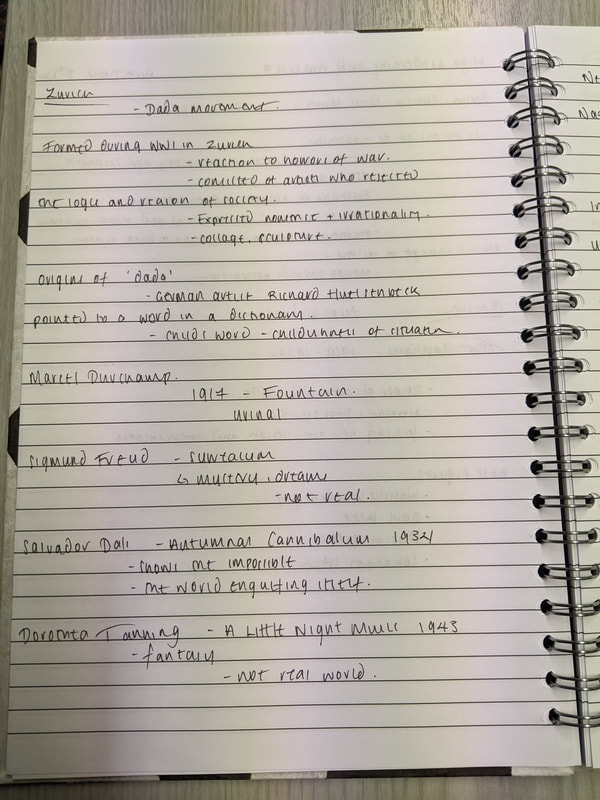 Zurich
- Dada movement.
Formed during WW1 in Zurich
- reaction to horrors of war.
- consisted of artists who rejected
the logic and reason of society.
- Expressed nonsense + irrationality.
- collage, sculpture.
origins of 'dada'
- German artist Richard Huelsenbeck
pointed to a word in a dictionary.
- childs word - childishness of situation.
Marcel Durchamp.
1917 - Fountain.
urinal
Sigmund Freud - surrealism
↳ mystery, dreams
- not real.
Salvador Dali - Autumnal Cannibalism 1934
- shows the impossible
- the world engulfing itself.
Dorothea Tanning - A Little Night Music 1943
- fantasy
- not real world.